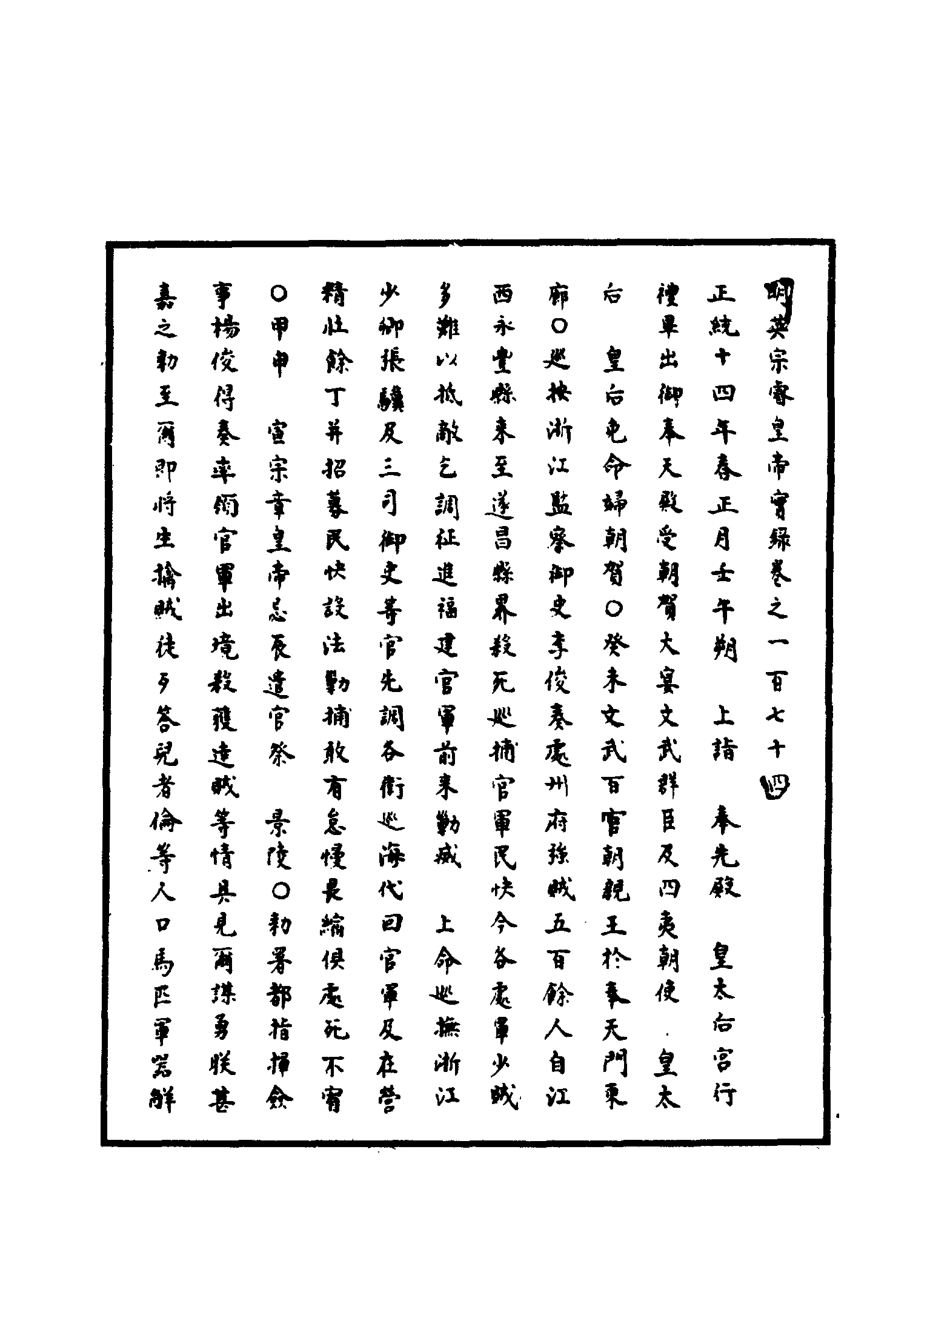 明英宗睿皇帝實錄卷之一百七十四
正統十四年春正月壬午朔　上詣　奉先殿　皇太后宮行
禮畢出御奉天殿受朝賀大宴文武群臣及四夷朝使　皇太
后　皇后免命婦朝賀○癸未文武百官朝親王於奉天門東
廊○巡按浙江監察御史李俊奏處州府強賊五百餘人自江
西永豐縣來至遂昌縣界殺死巡捕官軍民快今各處軍少賊
多難以抵敵乞調征進福建官軍前來勦滅　上命巡撫浙江
少卿張驥及三司御史等官先調各衛巡海代回官軍及在營
精壯餘丁并招募民快設法勦捕敢有怠慢畏縮俱處死不宥
○甲申　宣宗章皇帝忌辰遣官祭　景陵○勑署都指揮僉
事楊俊得奏率領官軍出境殺獲達賊等情具見爾謀勇朕甚
嘉之勑至爾即將生擒賊徒歹答兒者倫等人口馬匹軍器解